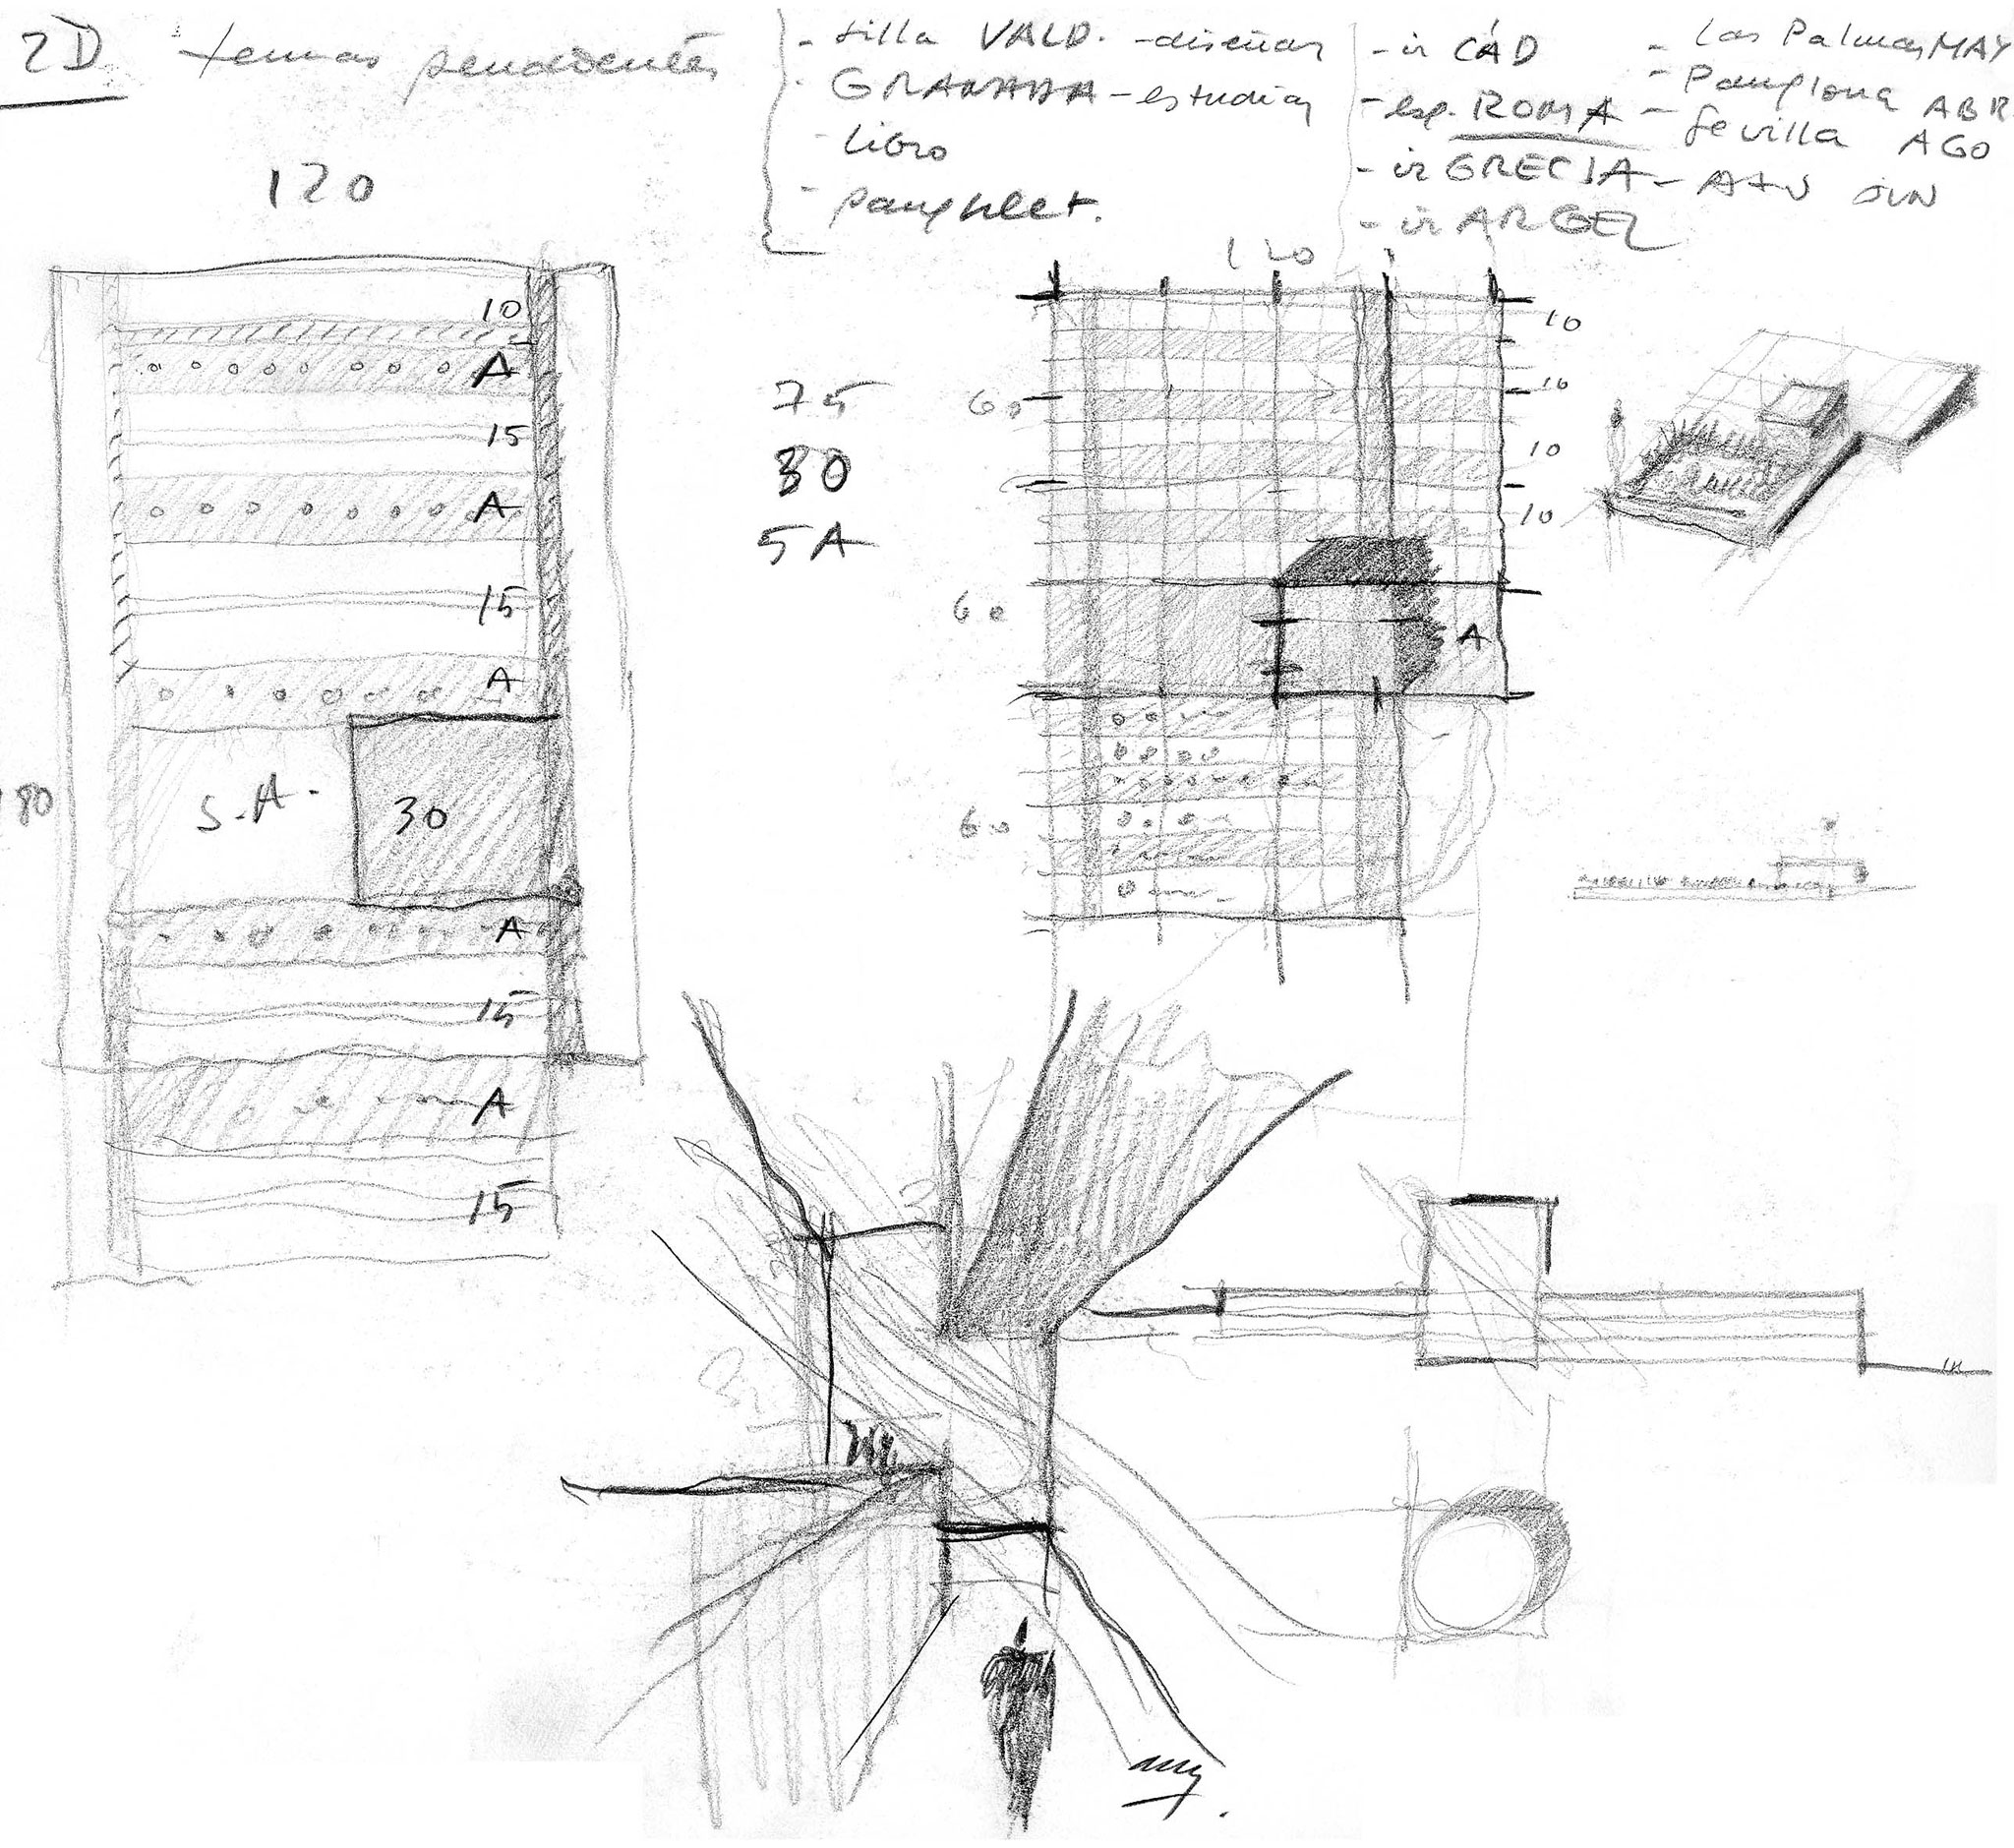 2D temas pendientes
- silla VALD. - diseñar
- GRANADA - estudiar
- libro
- pamphlet.
- ir CÁD
- esp. ROMA
- ir GRECIA - ATN JUN
- ir ARGEL
- Las Palmas MAY
- Pamplona ABR
- Sevilla AGO
120
10
A
15
A
15
A
S.A.
30
A
15
A
15
75
30
5A
120
10
10
10
10
60
60
60
A